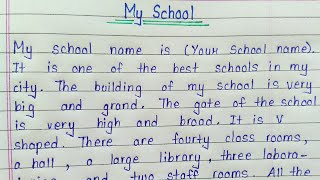 My School
My school name is (Your School name).
It is one of the best schools in my
city. The building of my school is very
big and grand. The gate of the school
is very high and broad. It is V
shaped. There are fourty class rooms,
a hall, a large library, three labora-
and two staff rooms. All the